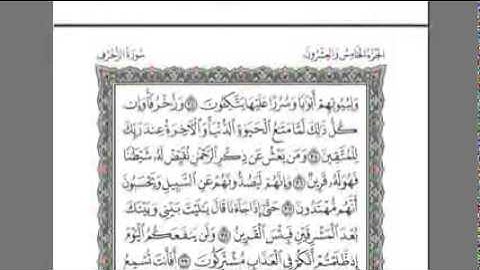 الجزء الخامس والعشرون
سورة الزخرف
ولبيوتهم أبوابا وسررا عليها يتكئون ٣٤ وزخرفا وإن
كل ذلك لما متع الحيوة الدنيا والآخرة عند ربك
للمتقين ٣٥ ومن يعش عن ذكر الرحمن نقيض له شيطنا
فهو له قرين ٣٦ وإنهم ليصدونهم عن السبيل ويحسبون
أنهم مهتدون ٣٧ حتى إذا جاءنا قال يليت بيني وبينك
بعد المشرقين فبئس القرين ٣٨ ولن ينفعكم اليوم
إذ ظلمتم أنكم في العذاب مشتركون ٣٩ أفأنت تسمع